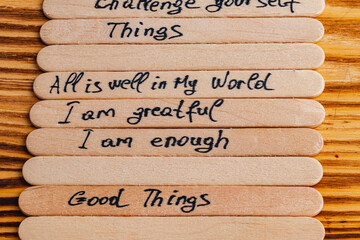 Challenge yourself
Things
All is well in My World
I am greatful
I am enough
Good Things